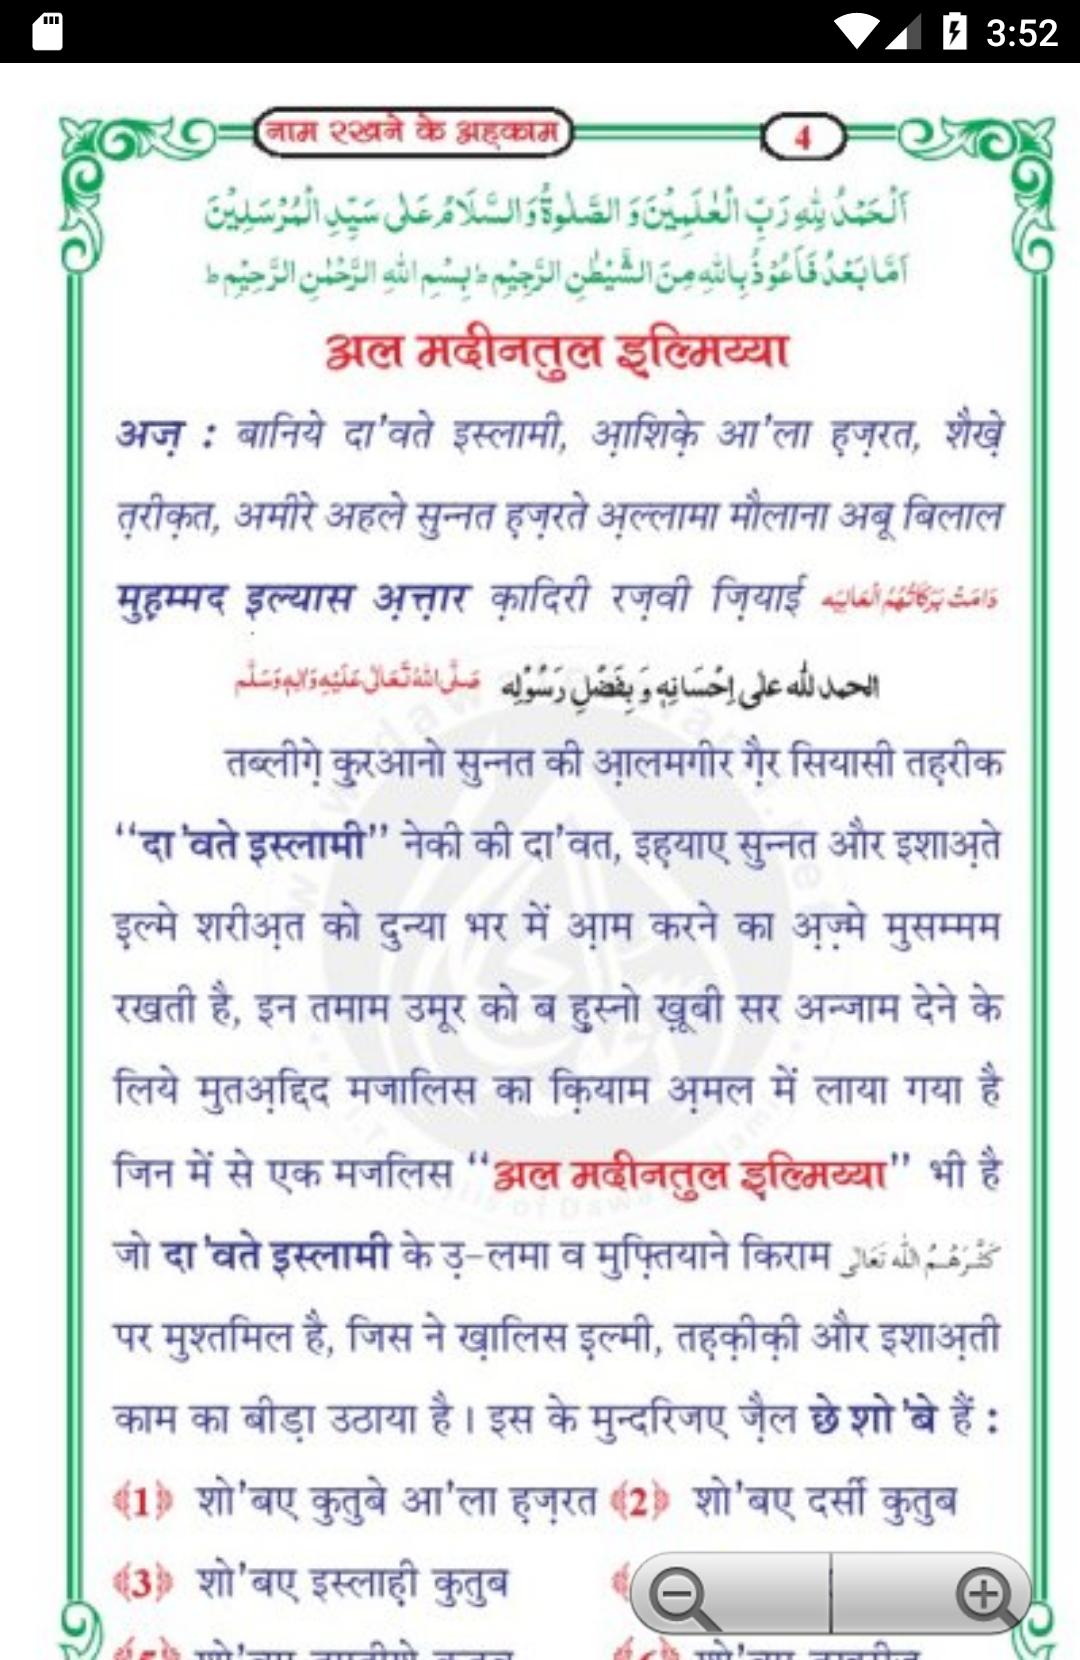 3:52
नाम रखने के अह़काम
4
اَلْحَمْدُ لِلّٰهِ رَبِّ الْعٰلَمِيْنَ وَ الصَّلٰوةُ وَ السَّلَامُ عَلٰى سَيِّدِ الْمُرْسَلِيْنَ
اَمَّا بَعْدُ فَاَعُوْذُ بِاللّٰهِ مِنَ الشَّيْطٰنِ الرَّجِيْمِ ؕ بِسْمِ اللهِ الرَّحْمٰنِ الرَّحِيْمِ ؕ
अल मदीनतुल इल्मिय्या
अज़ : बानिये दा'वते इस्लामी, आ़शिक़े आ'ला ह़ज़रत, शैख़े
त़रीक़त, अमीरे अहले सुन्नत ह़ज़रते अ़ल्लामा मौलाना अबू बिलाल
मुह़म्मद इल्यास अ़त्त़ार क़ादिरी रज़वी ज़ियाई دَامَتْ بَرَكَاتُهُمُ الْعَالِيَه
الحمد لله على اِحْسَانِهٖ وَ بِفَضْلِ رَسُوْلِهٖ صَلَّى اللهُ تَعَالٰى عَلَيْهِ وَاٰلِهٖ وَسَلَّم
तब्लीग़े क़ुरआनो सुन्नत की आ़लमगीर ग़ैर सियासी तह़रीक
“दा'वते इस्लामी” नेकी की दा'वत, इह़याए सुन्नत और इशाअ़ते
इ़ल्मे शरीअ़त को दुन्या भर में आ़म करने का अ़ज़्मे मुसम्मम
रखती है, इन तमाम उमूर को ब हु़स्नो ख़ूबी सर अन्जाम देने के
लिये मुतअ़द्दिद मजालिस का क़ियाम अ़मल में लाया गया है
जिन में से एक मजलिस “अल मदीनतुल इल्मिय्या” भी है
जो दा'वते इस्लामी के उ़-लमा व मुफ़्तियाने किराम كَثَّرَهُمُ اللّٰه تَعَالٰى
पर मुश्तमिल है, जिस ने ख़ालिस इ़ल्मी, तह़क़ीक़ी और इशाअ़ती
काम का बीड़ा उठाया है। इस के मुन्दरिजए ज़ैल छे शो'बे हैं :
﴾1﴿ शो'बए कुतुबे आ'ला ह़ज़रत ﴾2﴿ शो'बए दर्सी कुतुब
﴾3﴿ शो'बए इस्लाह़ी कुतुब